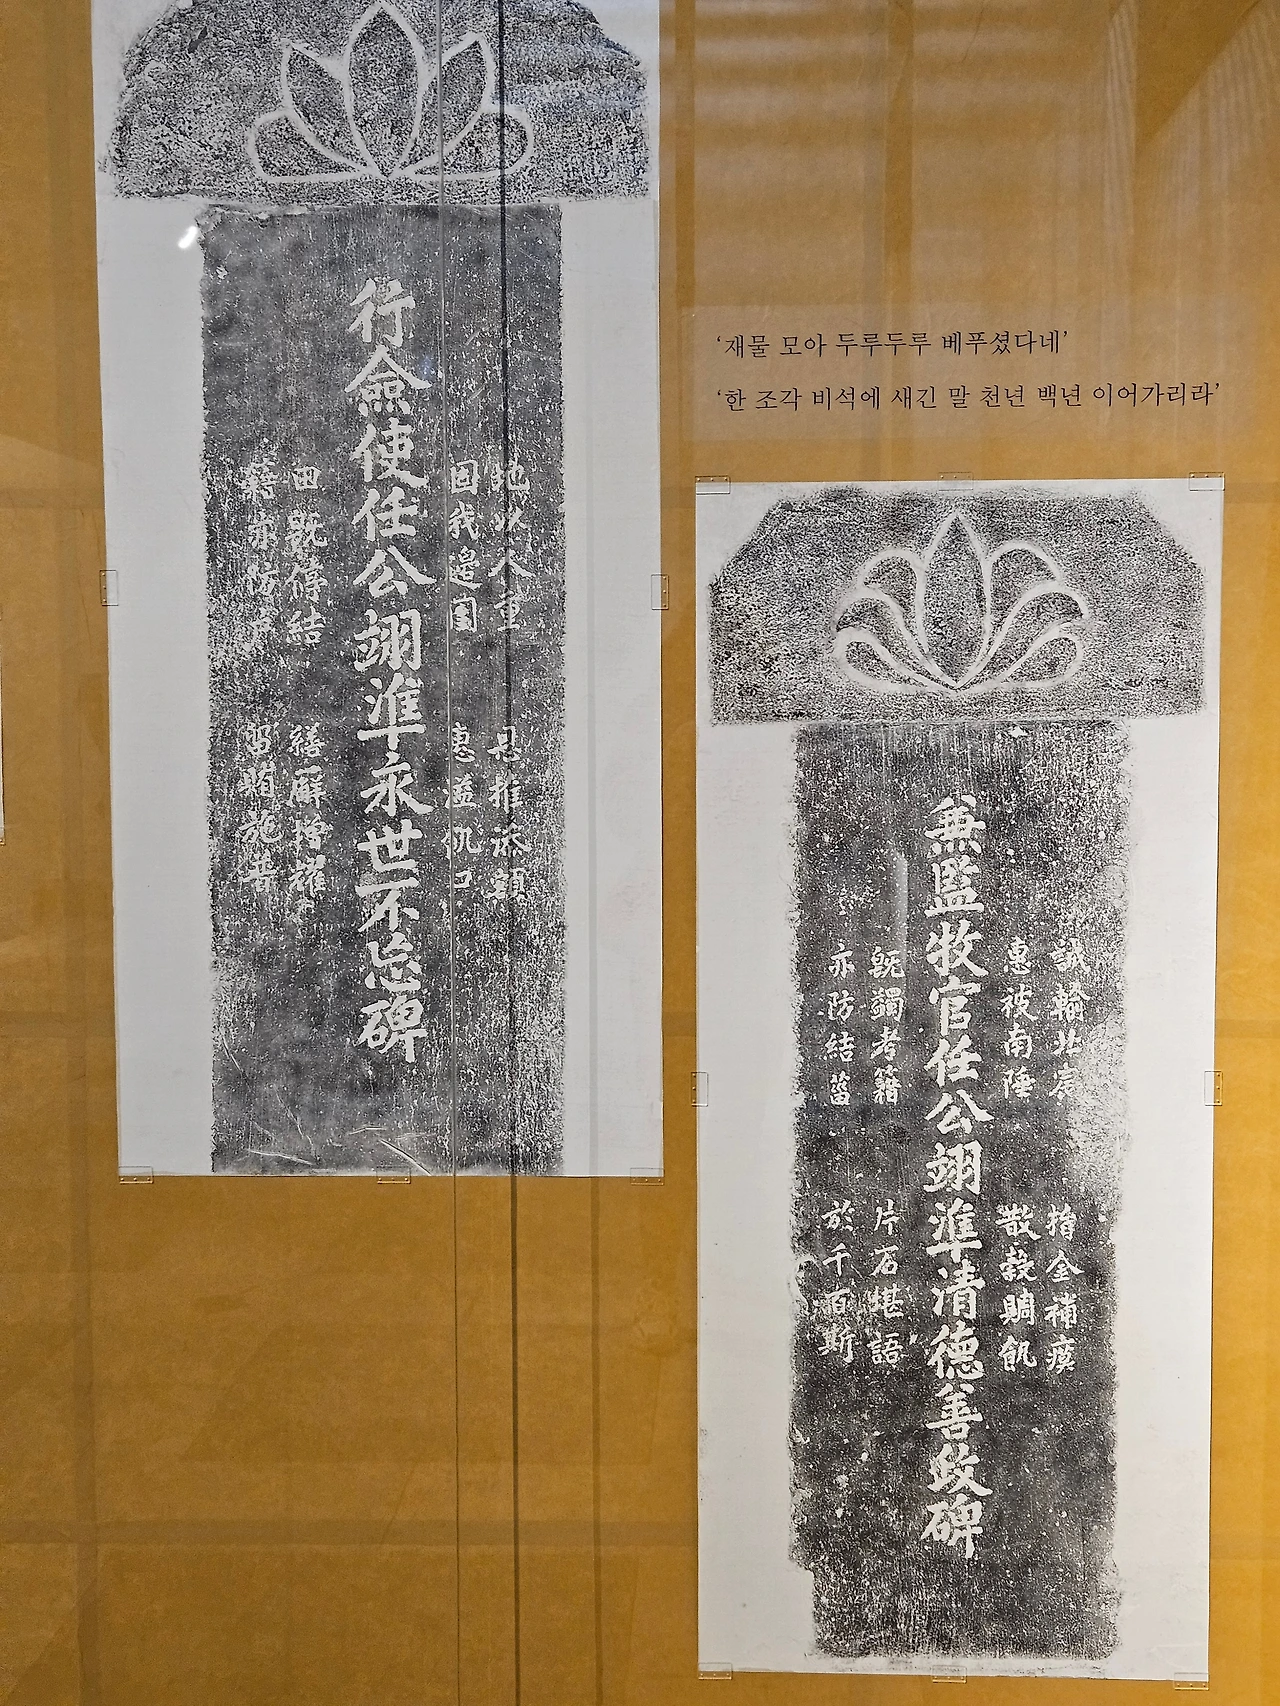 地以人重 恩推添額
固我邊圉 惠溢飢口
行僉使任公翊準永世不忘碑
田既停結 繕廨增耀
籍亦防戶 施普
‘재물 모아 두루두루 베푸셨다네’
‘한 조각 비석에 새긴 말 천년 백년 이어가리라’
誠輸北宸 捐金補瘼
惠被南陲 散穀賙飢
兼監牧官任公翊準清德善政碑
既蠲考籍 片石堪語
亦防結菑 於千百斯